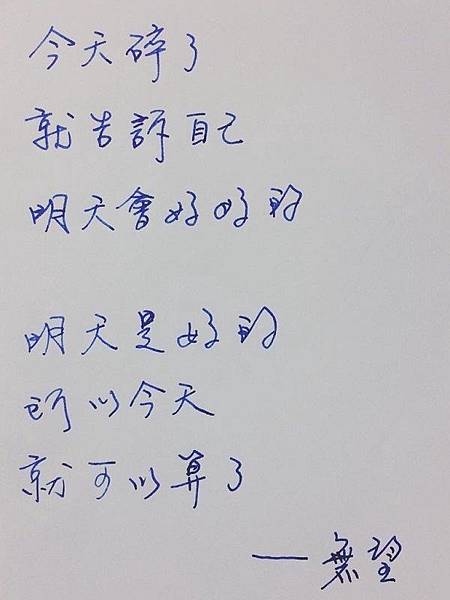 今天碎了
就告訴自己
明天會好好的
明天是好的
所以今天
就可以算了
——無望